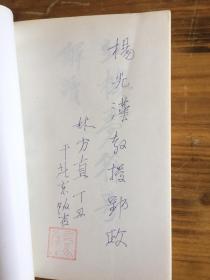 楊光漢教授郢政
林方直 丁丑
于北京饭店